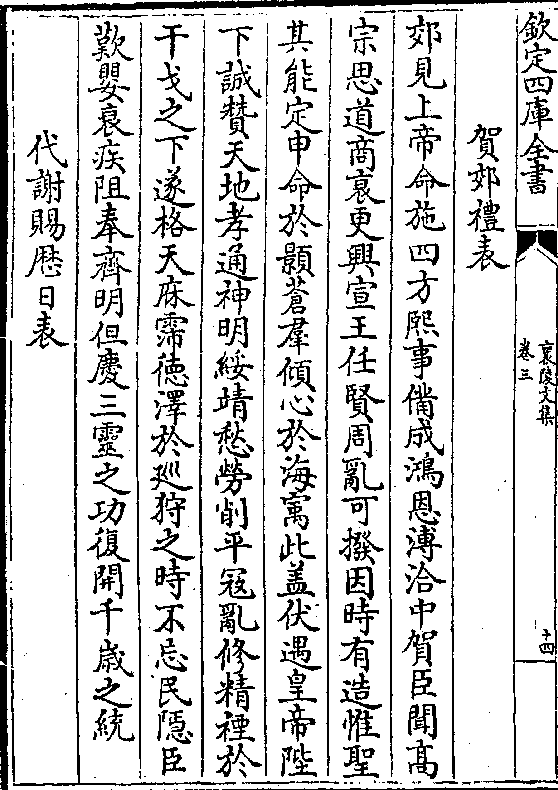 欽定四庫全書
襄陵文集
卷三
十四
賀郊禮表
郊見上帝命施四方熙事備成鴻恩溥洽中賀臣聞髙
宗思道商衰更興宣王任賢周亂可撥因時有造惟聖
其能定申命於顥蒼羣傾心於海㝢此盖伏遇皇帝陛
下誠賛天地孝通神明綏靖愁勞削平冦亂修精禋於
干戈之下遂格天庥霈徳澤於廵狩之時不忘民隱臣
歎嬰衰疾阻奉齋明但慶三靈之功復開千歳之統
代謝賜厯日表